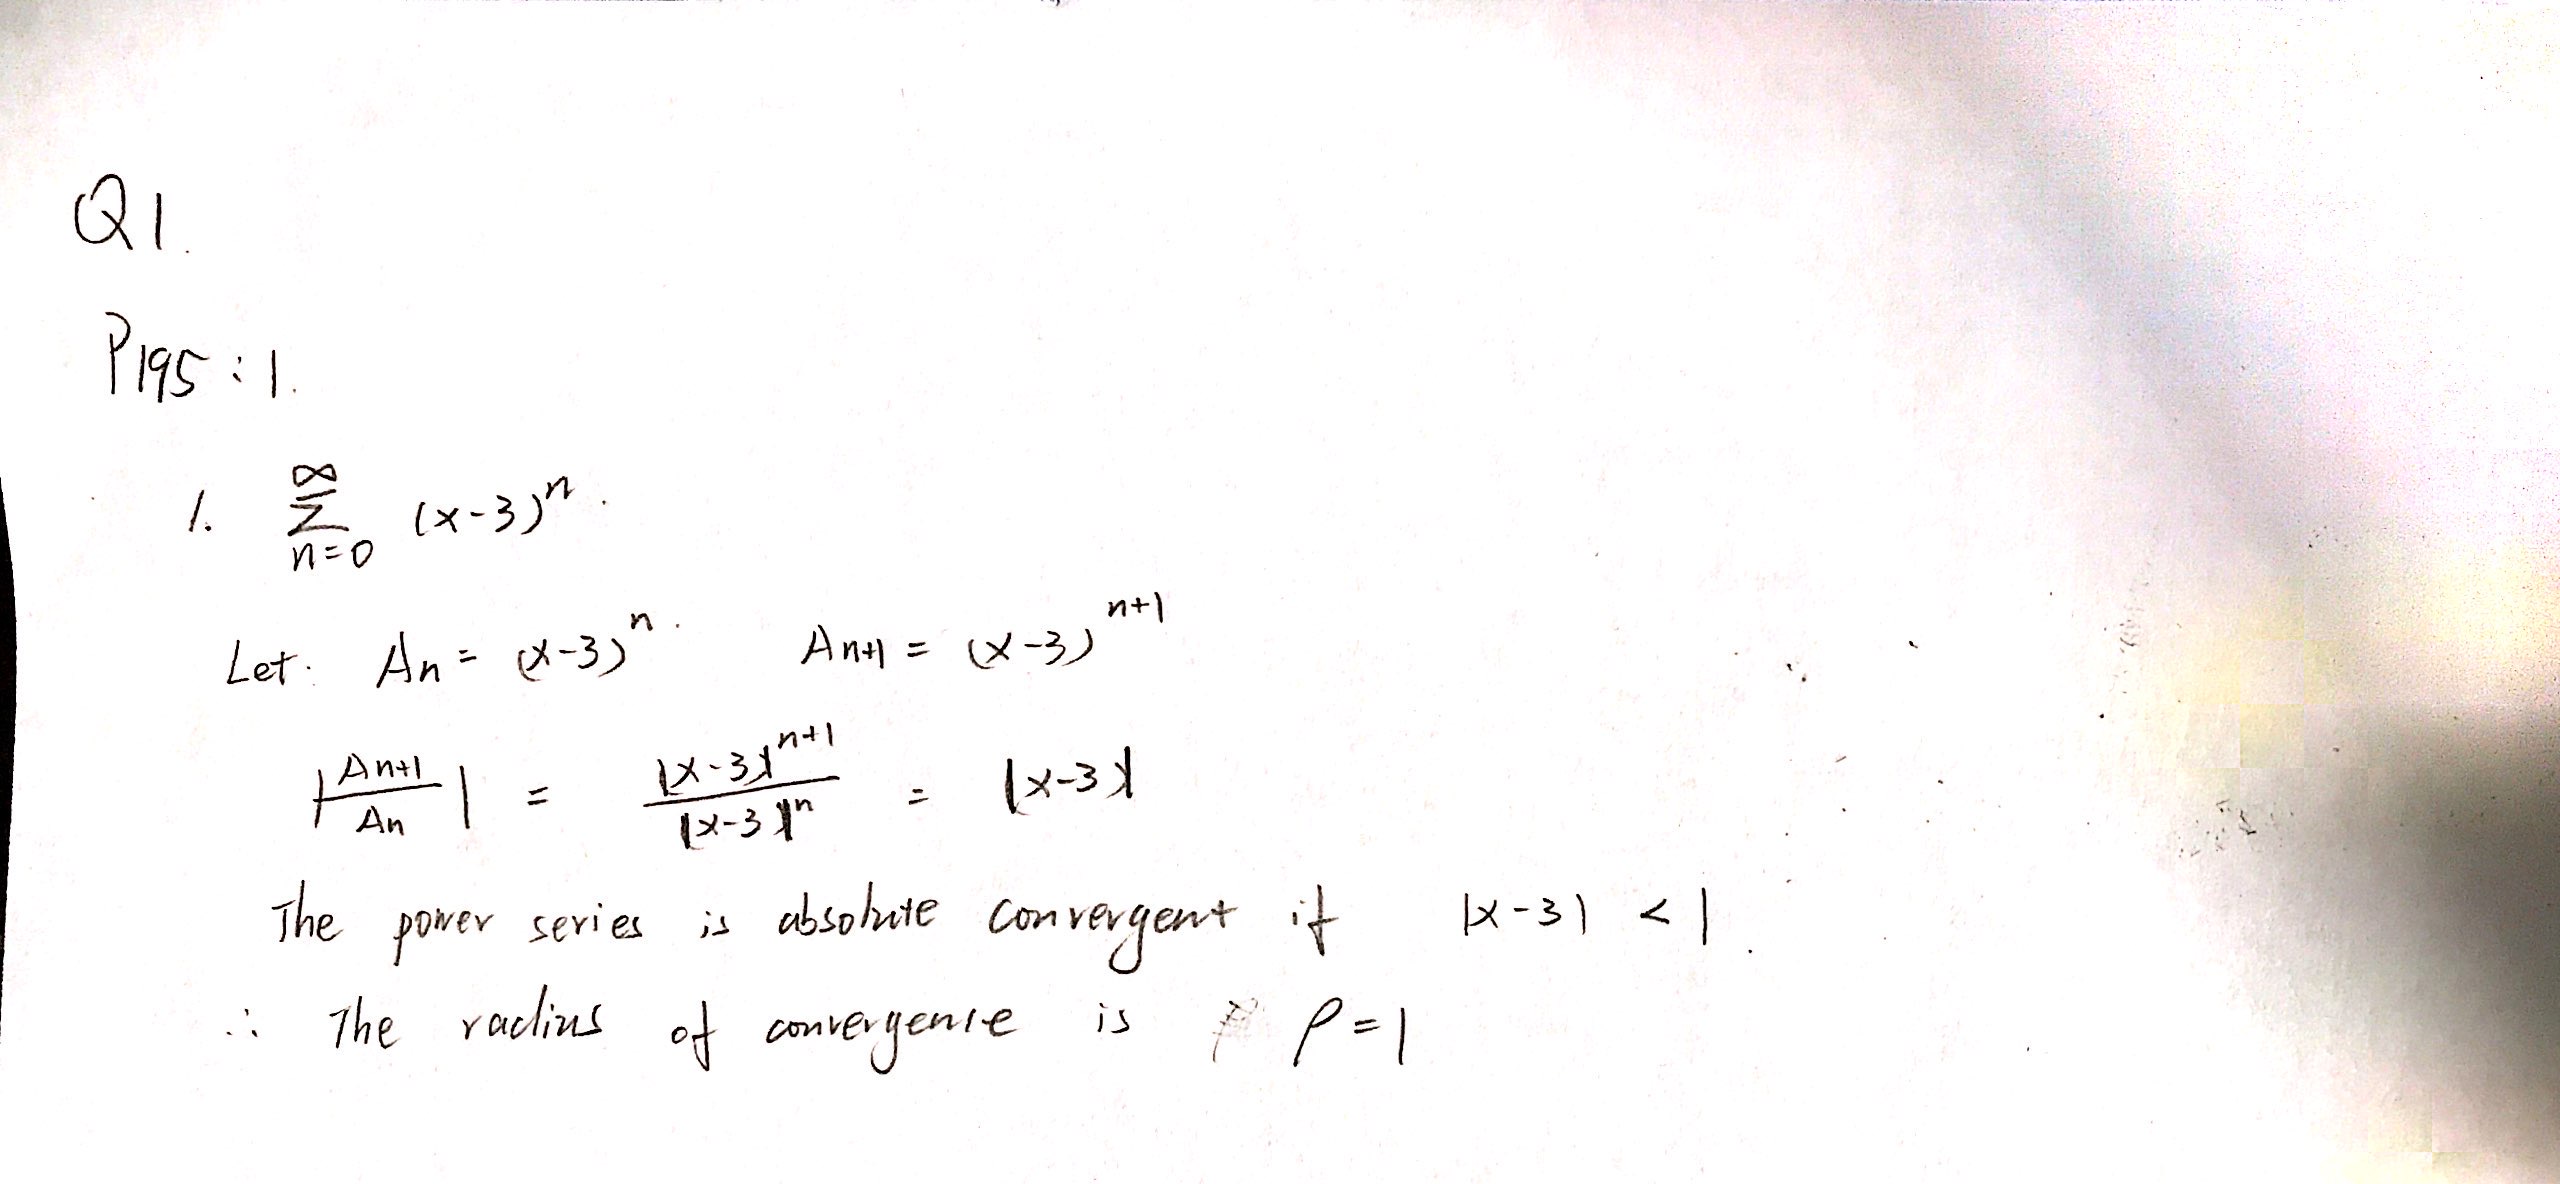 Q1.
P195 : 1.
1. ∞ Σ n=0 (x-3)ⁿ.
Let: An = (x-3)ⁿ. An+1 = (x-3)ⁿ⁺¹
|An+1/An| = |x-3|ⁿ⁺¹/|x-3|ⁿ = |x-3|
The power series is absolute convergent if |x-3| < 1.
∴ The radius of convergence is ρ = 1